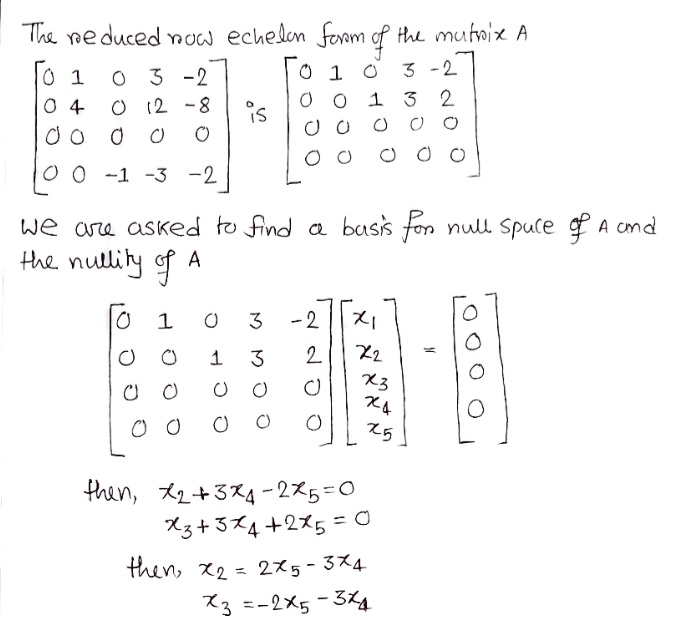 The reduced row echelon form of the matrix A
[0 1 0 3 -2] [0 1 0 3 -2]
[0 4 0 12 -8] is [0 0 1 3 2]
[0 0 0 0 0] [0 0 0 0 0]
[0 0 -1 -3 -2] [0 0 0 0 0]
we are asked to find a basis for null space of A and
the nullity of A
[0 1 0 3 -2] [x₁] [0]
[0 0 1 3 2] [x₂] = [0]
[0 0 0 0 0] [x₃] [0]
[0 0 0 0 0] [x₄] [0]
[x₅]
then, x₂+3x₄-2x₅=0
x₃+3x₄+2x₅=0
then, x₂ = 2x₅-3x₄
x₃ =-2x₅-3x₄